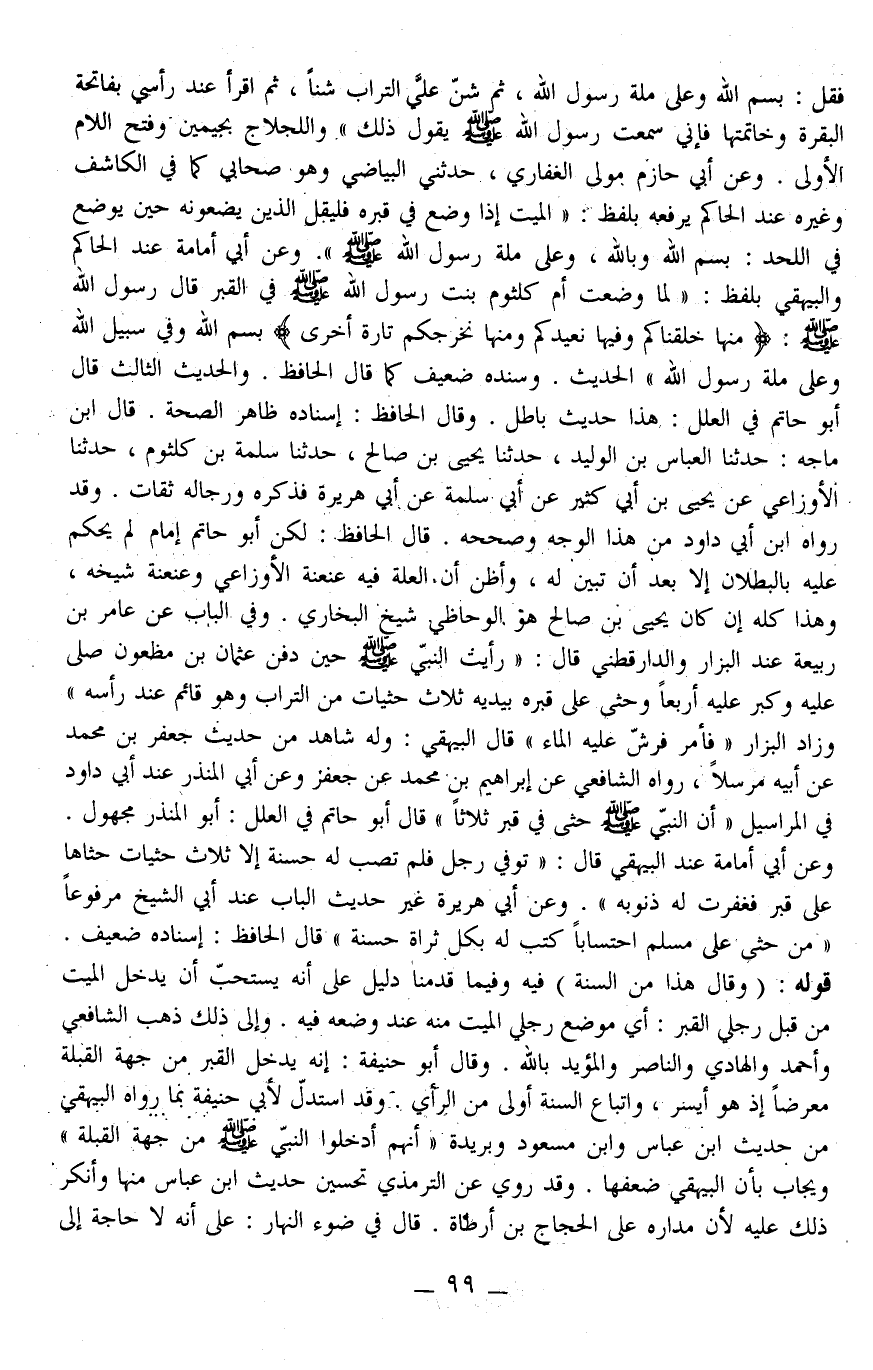 فقل : بسم الله وعلى ملة رسول الله ، ثم شنّ عليَّ التراب شناً ، ثم اقرأ عند رأسي بفاتحة
البقرة وخاتمتها فإني سمعت رسول الله ﷺ يقول ذلك » واللجلاج بجيمين وفتح اللام
الأولى . وعن أبي حازم مولى الغفاري ، حدثني البياضي وهو صحابي كما في الكاشف
وغيره عند الحاكم يرفعه بلفظ : « الميت إذا وضع في قبره فليقل الذين يضعونه حين يوضع
في اللحد : بسم الله وبالله ، وعلى ملة رسول الله ﷺ ». وعن أبي أمامة عند الحاكم
والبيهقي بلفظ : « لما وضعت أم كلثوم بنت رسول الله ﷺ في القبر قال رسول الله
ﷺ : ﴿ منها خلقناكم وفيها نعيدكم ومنها نخرجكم تارة أخرى ﴾ بسم الله وفي سبيل الله
وعلى ملة رسول الله » الحديث . وسنده ضعيف كما قال الحافظ . والحديث الثالث قال
أبو حاتم في العلل : هذا حديث باطل . وقال الحافظ : إسناده ظاهر الصحة . قال ابن
ماجه : حدثنا العباس بن الوليد ، حدثنا يحيى بن صالح ، حدثنا سلمة بن كلثوم ، حدثنا
الأوزاعي عن يحيى بن أبي كثير عن أبي سلمة عن أبي هريرة فذكره ورجاله ثقات . وقد
رواه ابن أبي داود من هذا الوجه وصححه . قال الحافظ : لكن أبو حاتم إمام لم يحكم
عليه بالبطلان إلا بعد أن تبين له ، وأظن أن العلة فيه عنعنة الأوزاعي وعنعنة شيخه ،
وهذا كله إن كان يحيى بن صالح هو الوحاظي شيخ البخاري . وفي الباب عن عامر بن
ربيعة عند البزار والدارقطني قال : « رأيت النبيّ ﷺ حين دفن عثمان بن مظعون صلى
عليه وكبر عليه أربعاً وحثى على قبره بيديه ثلاث حثيات من التراب وهو قائم عند رأسه »
وزاد البزار « فأمر فرشّ عليه الماء » قال البيهقي : وله شاهد من حديث جعفر بن محمد
عن أبيه مرسلاً ، رواه الشافعي عن إبراهيم بن محمد عن جعفر وعن أبي المنذر عند أبي داود
في المراسيل « أن النبيّ ﷺ حثى في قبر ثلاثاً » قال أبو حاتم في العلل : أبو المنذر مجهول .
وعن أبي أمامة عند البيهقي قال : « توفي رجل فلم تصب له حسنة إلا ثلاث حثيات حثاها
على قبر فغفرت له ذنوبه » . وعن أبي هريرة غير حديث الباب عند أبي الشيخ مرفوعاً
« من حثى على مسلم احتساباً كتب له بكل ثراة حسنة » قال الحافظ : إسناده ضعيف .
قوله : ( وقال هذا من السنة ) فيه وفيما قدمنا دليل على أنه يستحبّ أن يدخل الميت
من قبل رجلي القبر : أي موضع رجلي الميت منه عند وضعه فيه . وإلى ذلك ذهب الشافعي
وأحمد والهادي والناصر والمؤيد بالله . وقال أبو حنيفة : إنه يدخل القبر من جهة القبلة
معرضاً إذ هو أيسر ، واتباع السنة أولى من الرأي . وقد استدلّ لأبي حنيفة بما رواه البيهقي
من حديث ابن عباس وابن مسعود وبريدة « أنهم أدخلوا النبيّ ﷺ من جهة القبلة »
ويجاب بأن البيهقي ضعفها . وقد روي عن الترمذي تحسين حديث ابن عباس منها وأنكر
ذلك عليه لأن مداره على الحجاج بن أرطاة . قال في ضوء النهار : على أنه لا حاجة إلى
_ ٩٩ _